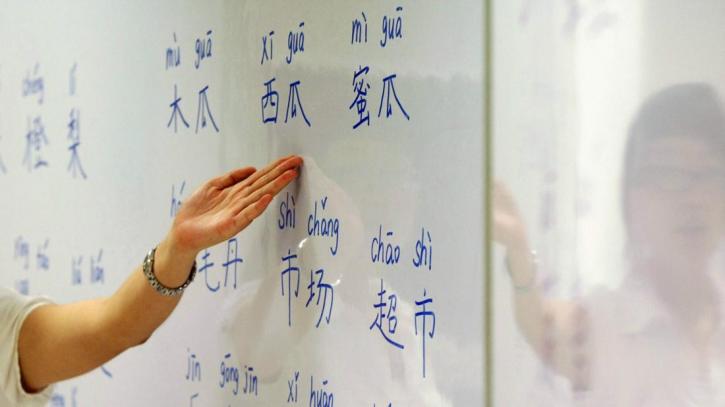 mù guā xī guā mì guā
木瓜 西瓜 蜜瓜
chéng lí
橙 梨
shì chǎng chāo shì
毛丹 市场 超市
liú lián
jīn gōng jīn xǐ huān